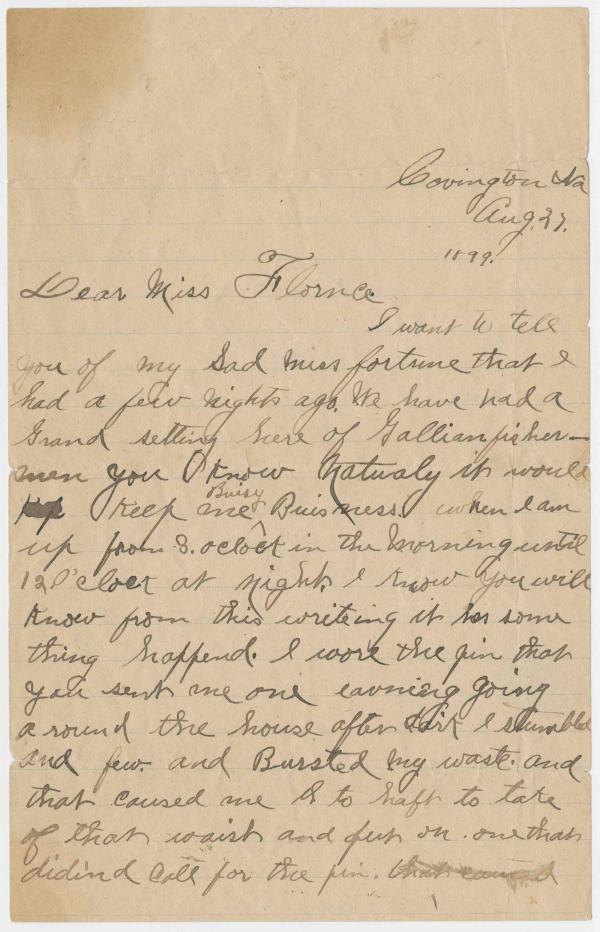 Covington Va
Aug. 27.
1899.
Dear Miss Flornce.
I want to tell
you of my Sad miss fortune that I
had a few nights ago. We have had a
Grand setting here of Gallian fisher-
men you Know Natualy it would
Keep me Buisy Buisness. when I am
up from 8. oclock in the Morning until
12 O'clock at night. I know you will
Know from this writeing it has some
thing happend. I wore the pin that
you sent me one eavning going
around the house after dark I stumbled
and few. and Bursted my waste. and
that caused me to haft to take
of that waist and put on. one that
didind call for the pin. that caused